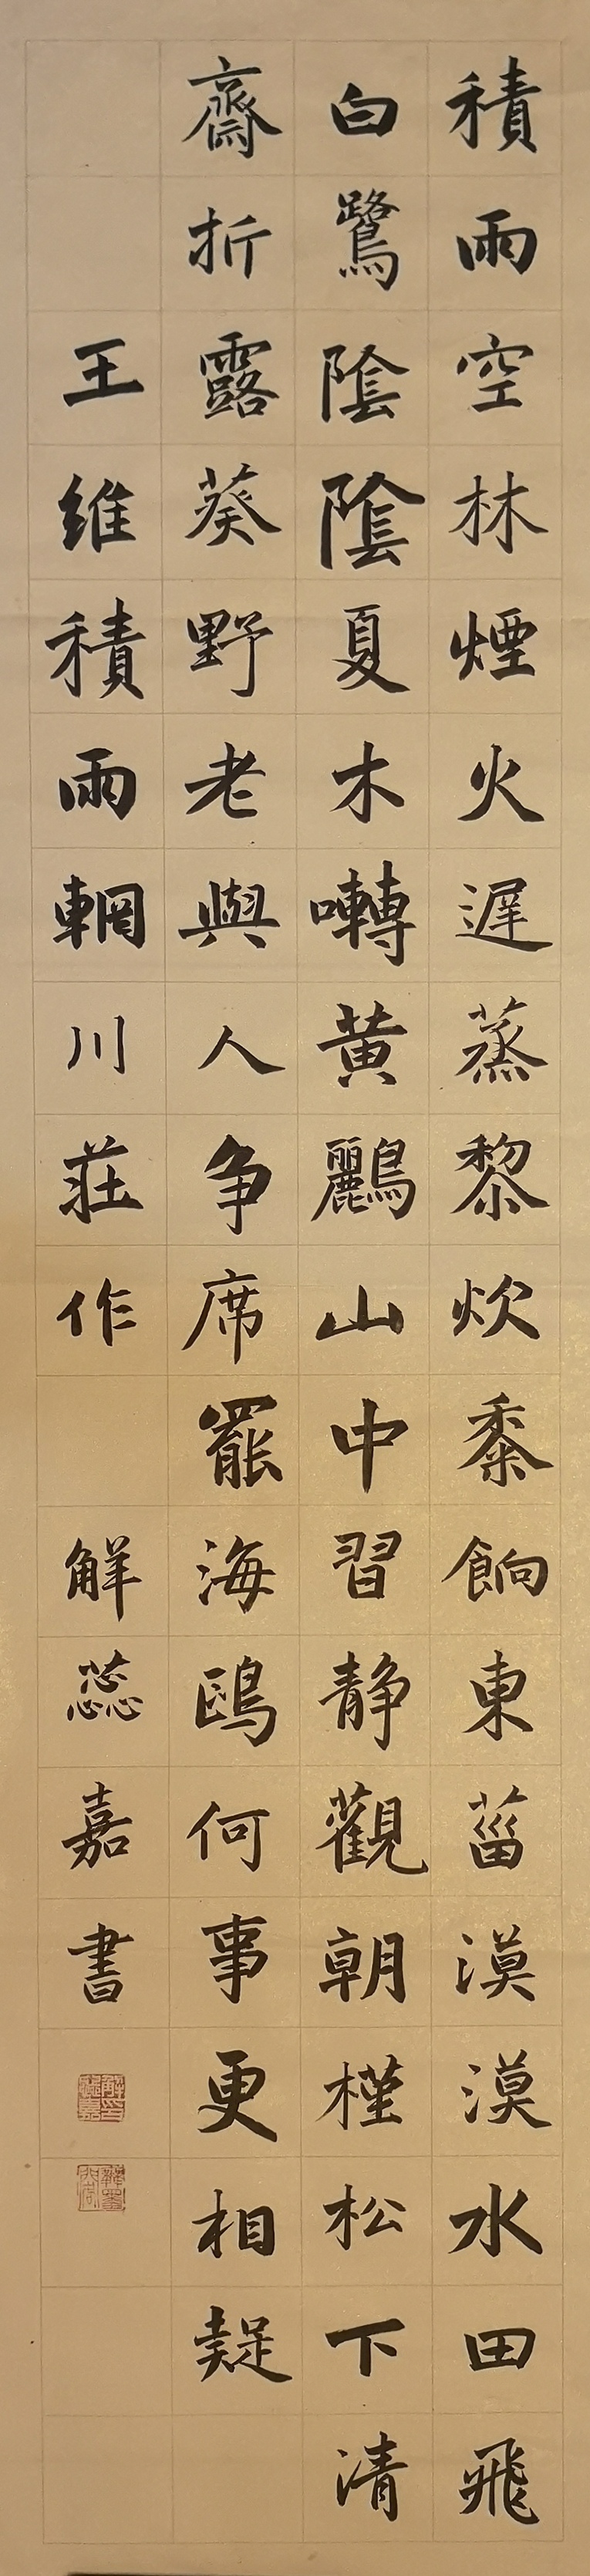 積雨空林煙火遲蒸黎炊黍餉東菑漠漠水田飛
白鷺陰陰夏木囀黃鸝山中習靜觀朝槿松下清
齋折露葵野老與人争席罷海鷗何事更相疑
王維積雨輞川莊作
解蕊嘉書